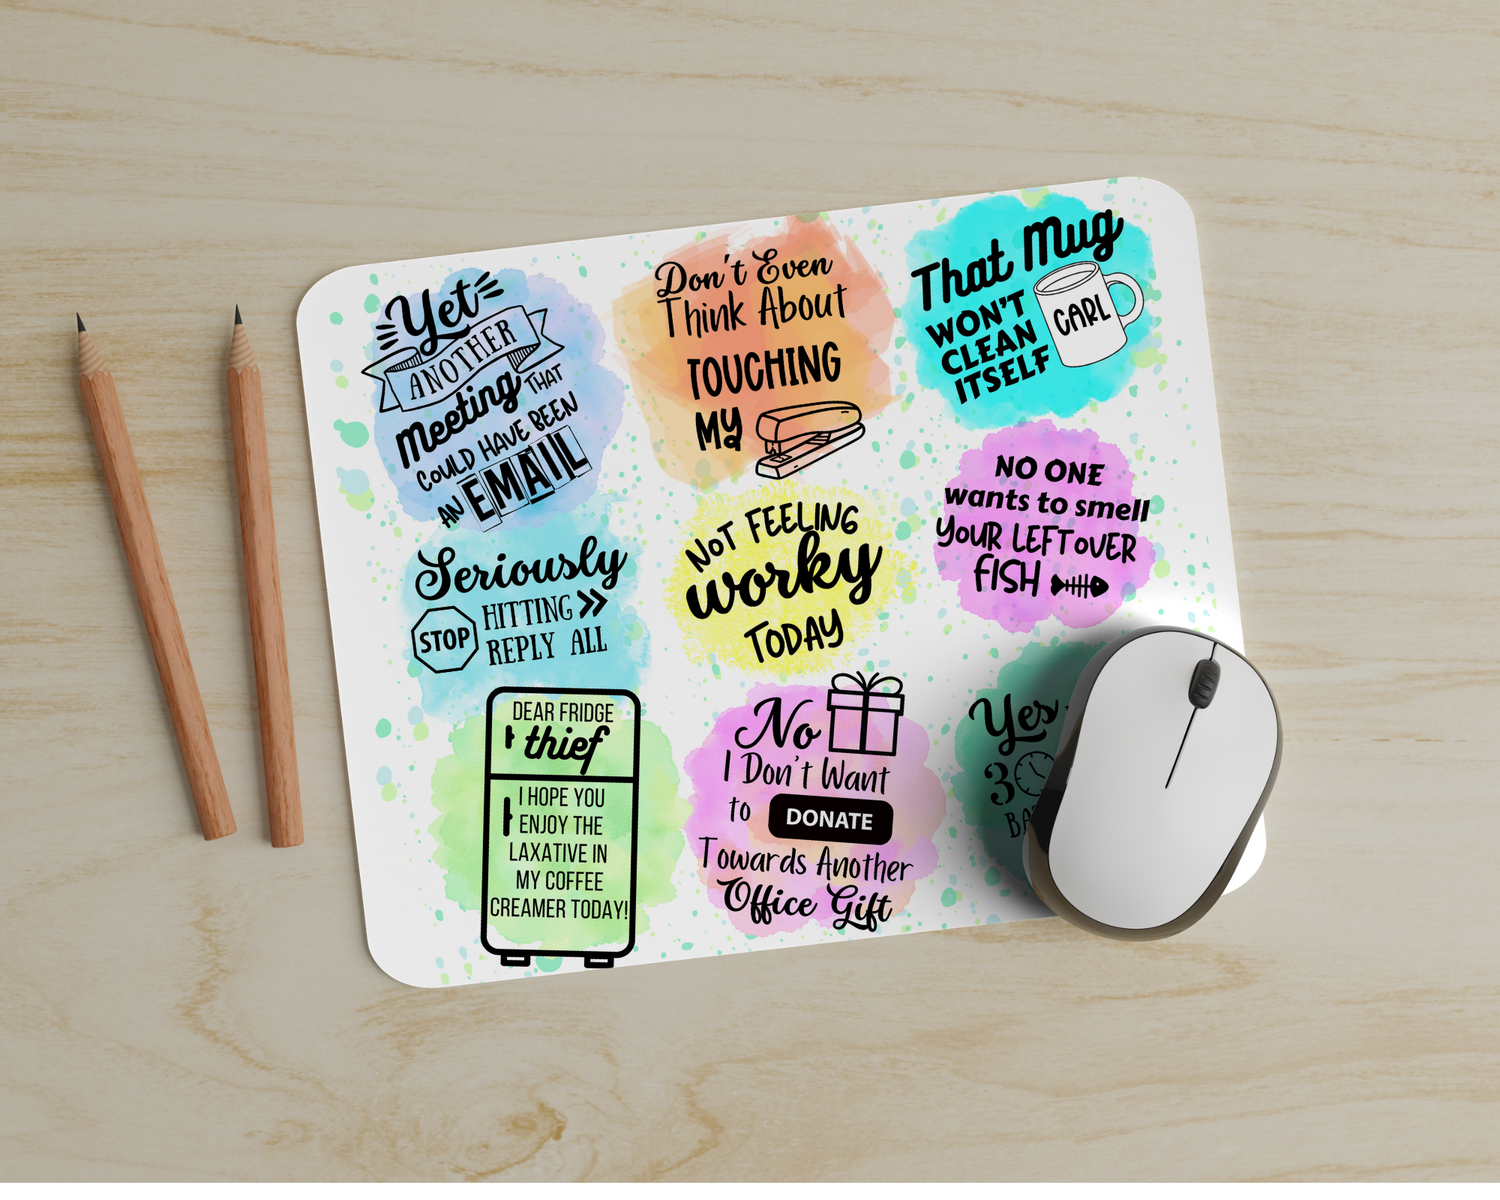 Yet
ANOTHER
Meeting THAT
COULD HAVE BEEN
AN EMAIL
Don't Even
Think About
TOUCHING
My
That Mug
WON'T
CLEAN
ITSELF
CARL
Seriously
STOP
HITTING
REPLY ALL
NOT FEELING
worky
TODAY
NO ONE
wants to smell
YOUR LEFTOVER
FISH
DEAR FRIDGE
thief
I HOPE YOU
ENJOY THE
LAXATIVE IN
MY COFFEE
CREAMER TODAY!
No
I Don't Want
to DONATE
Towards Another
Office Gift
Yes
3